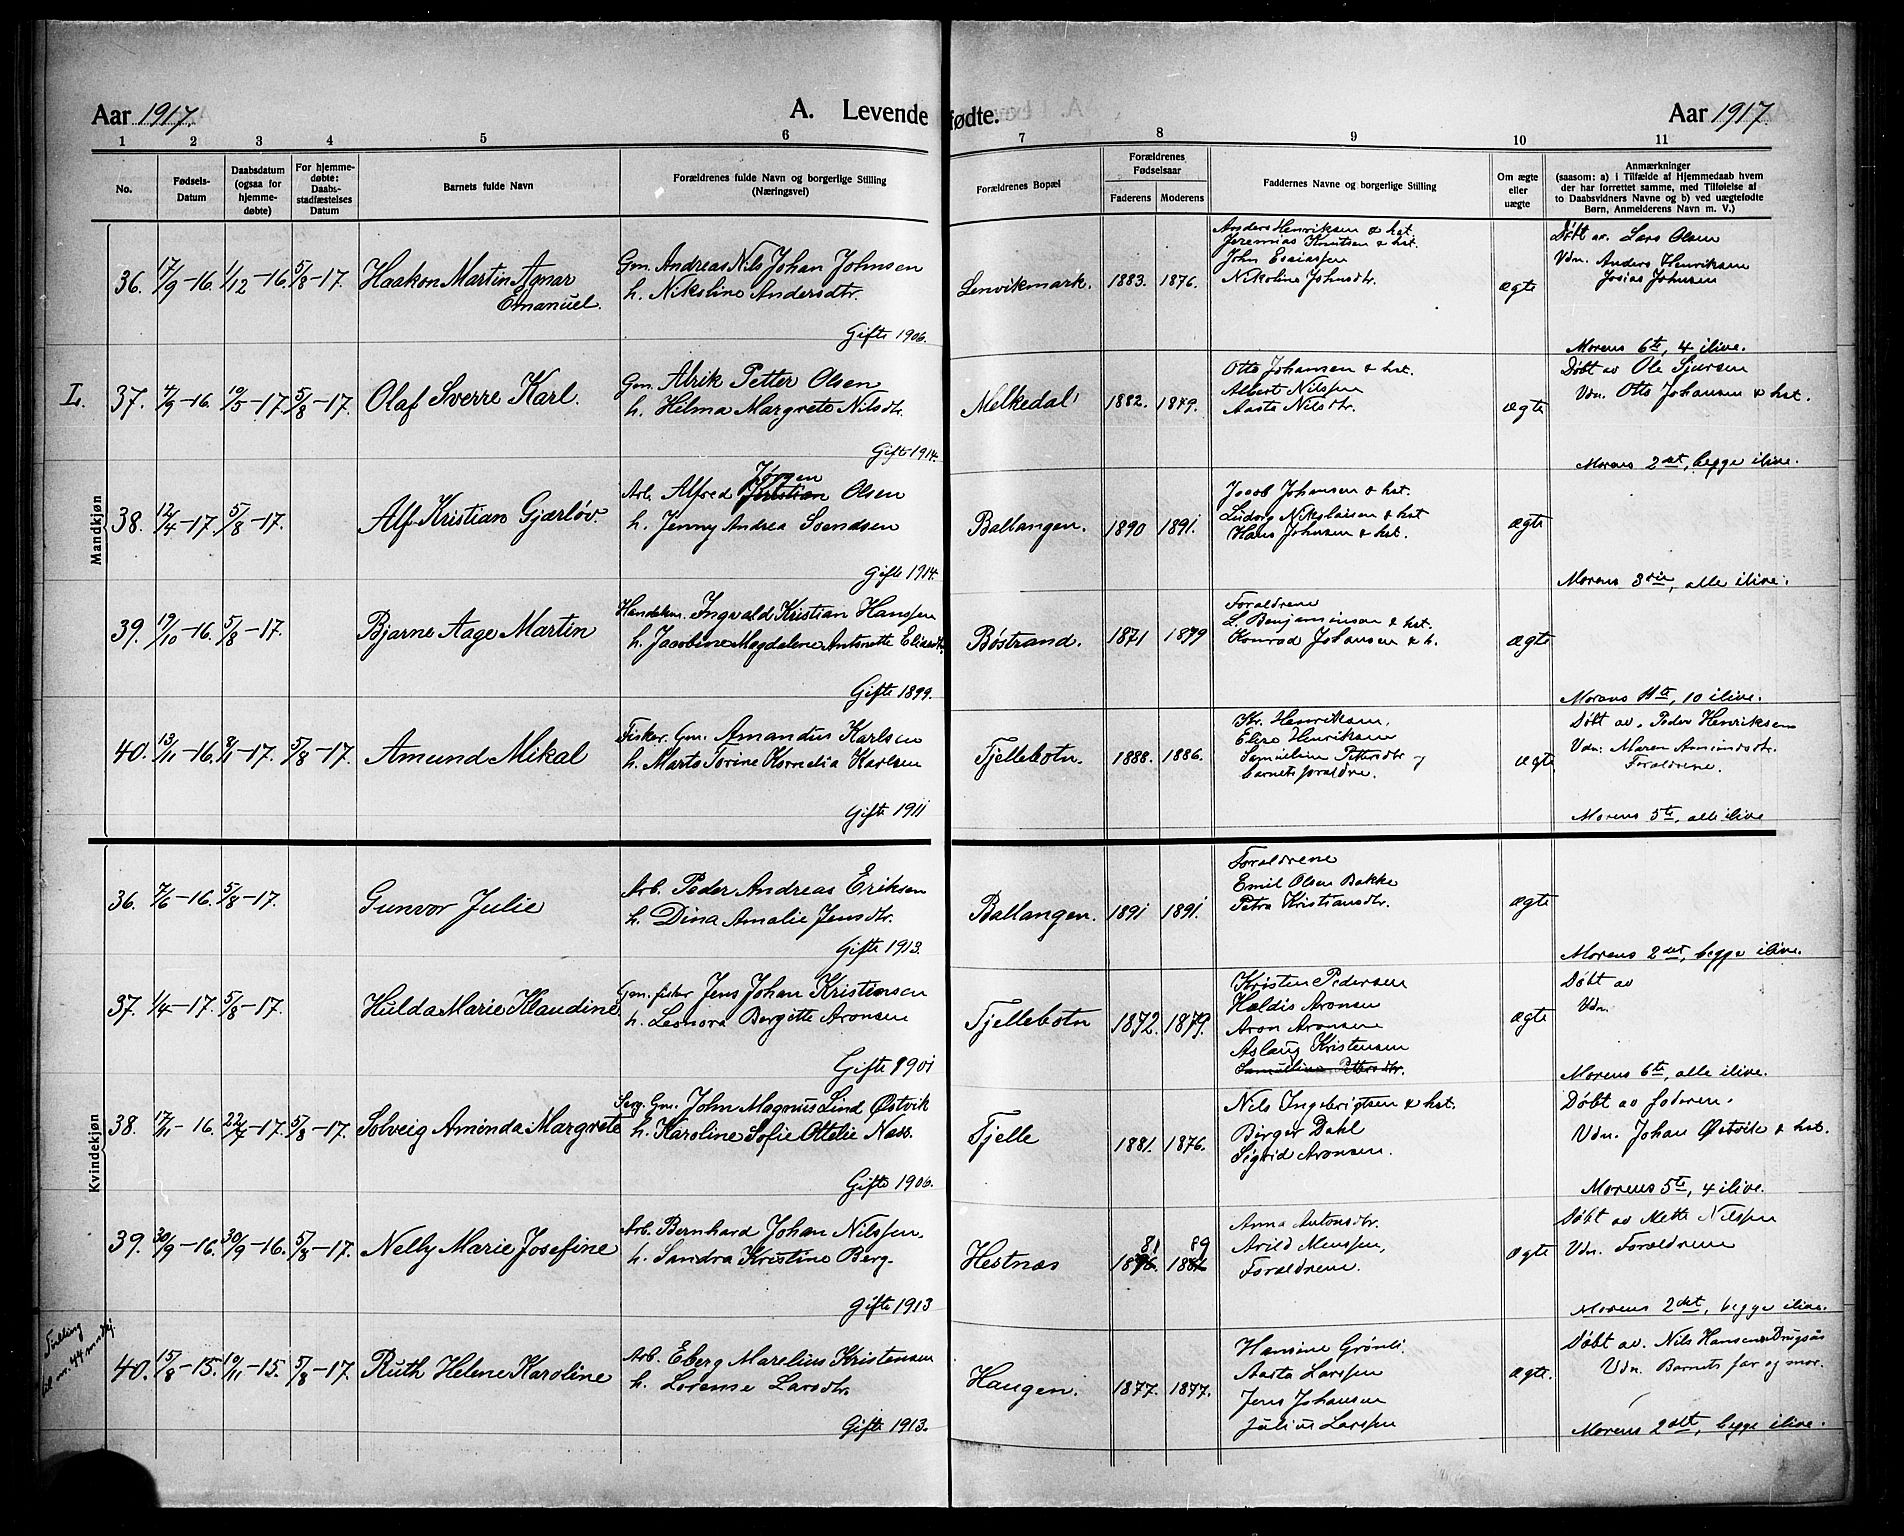 Aar 1917.
A. Levende fødte.
Aar 1917.
1 2 3 4 5 6 7 8 9 10 11
No.
Fødsels-
Datum
Daabsdatum
(ogsaa for
hjemme-
døbte)
For hjemme-
døbte:
Daabs-
stadfæstelses
Datum
Barnets fulde Navn
Forældrenes fulde Navn og borgerlige Stilling
(Næringsvei)
Forældrenes Bopæl
Forældrenes
Fødselsaar
Faderens Moderens
Faddernes Navne og borgerlige Stilling
Om ægte
eller
uægte
Anmærkninger
(saasom: a) i Tilfælde af Hjemmedaab hvem
der har forrettet samme, med Tilføielse af
to Daabsvidners Navne og b) ved uægtefødte
Børn, Anmelderens Navn m. V.)
Mandkjøn
36. 17/9-16. 1/12-16. 5/8-17. Haakon Martin Agnar
Emanuel.
Gm. Andreas Nils Johan Johnsen
h. Nikoline Andersdtr.
Gifte 1906.
Lenvikmark. 1883. 1876.
Anders Henriksen & hst.
Jeremias Knutsen & hst.
John Esaiassen
Nikoline Johnsdtr.
ægte
Døbt av. Lars Olsen
Vdn. Anders Henriksen
Josias Johnsen
Morens 6te, 4 ilive.
L. 37. 4/9-16. 10/5-17. 5/8-17. Olaf Sverre Karl.
Gm. Alrik Petter Olsen
h. Helma Margrete Nilsdtr.
Gifte 1914.
Melkedal 1882. 1879.
Otto Johansen & hst.
Albert Nilssen
Aasta Nilsdtr.
ægte
Døbt av Ole Sjursen
Vdn. Otto Johansen & hst.
Morens 2det, begge ilive.
38. 12/4-17. 5/8-17. Alf Kristian Gjærløv.
Jørgen
Arb. Alfred Kristian Olsen
h. Jenny Andrea Svendsen
Gifte 1914.
Ballangen. 1890 1891.
Jacob Johansen & hst.
Ludvig Nikolaisen & hst
Hans Johnsen & hst.
ægte
Morens 3die, alle ilive.
39. 19/10-16. 5/8-17. Bjarne Aage Martin
Handelsm. Ingvald Kristian Hanssen
h. Jacobine Magdalene Antonette
Gifte 1899.
Bøstrand. 1871 1879
Forældrene
L. Benjaminsen & hst.
Konrad Johansen & h.
ægte
Morens 11te, 10 ilive.
40. 13/11-16. 8/1-17. 5/8-17. Amund Mikal
Fisker. Gm. Amandus Karlsen
h. Marta Torine Kornelia Karlsen
Gifte 1911
Fjellebotn. 1888. 1886.
Kr. Henriksen.
Elise Henriksen
Samueline Pettersdtr og
barnets forældre.
ægte
Døbt av. Peder Henriksen
Vdn. Maren Amundsdtr.
Forældrene.
Morens 5te, alle ilive
Kvindekjøn
36. 7/6-16. 5/8-17. Gunvor Julie
Arb. Peder Andreas Eriksen
h. Dina Amalie Jensdtr.
Gifte 1913.
Ballangen. 1891 1891.
Forældrene
Emil Olsen Bakke
Petra Kristiansdtr.
ægte
Morens 2det, begge ilive.
37. 1/4-17. 5/8-17. Hulda Marie Klaudine
Gm. fisker Jens Johan Kristiansen
h. Leonora Bergitte Aronsen
Gifte 1901
Fjellebotn 1872. 1879.
Kristen Pedersen
Haldis Aronsen
Aron Aronsen
Aslaug Kristensen
Samueline Pettersdtr.
ægte
Døbt av
Vdn.
Morens 6te, alle ilive.
38. 17/11-16. 22/7-17. 5/8-17. Solveig Aminda Margrete
Serg. Gm. John Magnus Lind Østvik
h. Karoline Sofie Ottelie Næss.
Gifte 1906.
Fjelle 1881. 1876.
Nils Ingebrigtsen & hst.
Birger Dahl
Sigrid Aronsen.
Døbt av faderen.
Vdn. Johan Østvik & hst.
Morens 5te, 4 ilive.
39. 30/9-16. 30/9-16. 5/8-17. Nelly Marie Josefine
Arb. Bernhard Johan Nilssen.
h. Sandra Kristine Berg.
Gifte 1913
Hestnæs 81 89
1876. 1886
Anna Antonsdtr.
Arild Monssen,
Forældrene.
ægte
Døbt av Mette Nilssen
Vdn. Forældrene
Morens 2det, begge ilive.
Tvilling
til nr. 44 mndkj.
40. 15/8-15. 10/11-15. 5/8-17. Ruth Helene Karoline
Arb. Eberg Marelius Kristensen
h. Lorense Larsdtr.
Gifte 1913.
Haugen. 1877. 1877.
Hansine Grønli.
Aasta Larssen
Jens Johansen
Julius Larssen
ægte.
Døbt av. Nils Hansen
Vdn. Barnets far og mor.
Morens 2det, begge ilive.